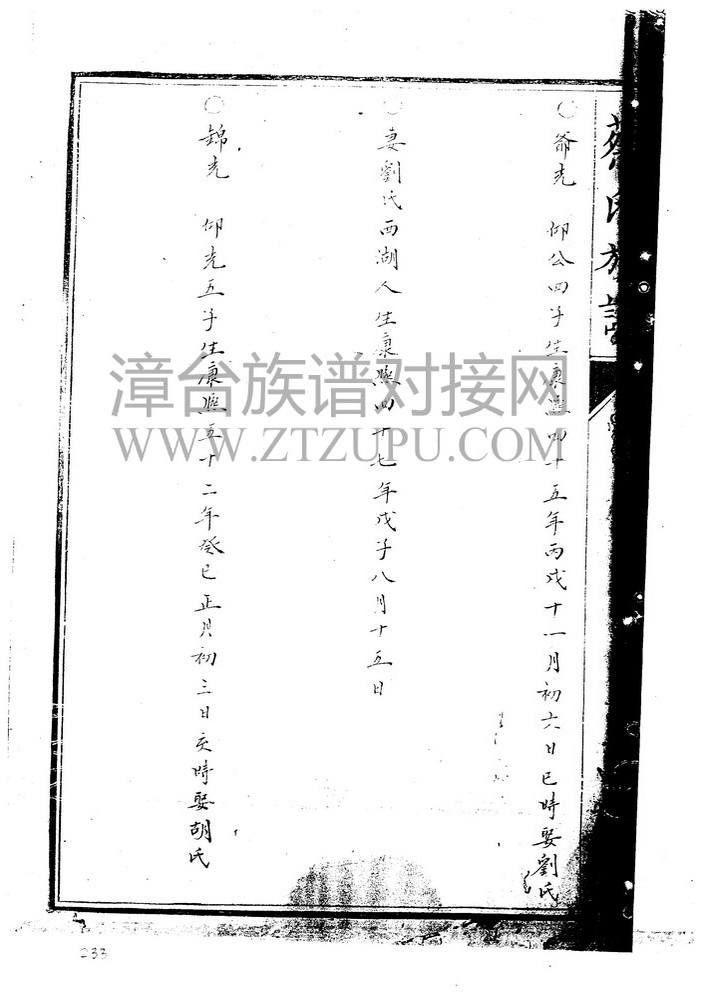 蔡氏族譜
○爺先　仰公四子生康熈四十五年丙戍十一月初六日巳時娶劉氏
○妻劉氏西湖人生康熈四十七年戊子八月十五日
○錦先　仰先五子生康熈五十二年癸巳正月初三日亥時娶胡氏
漳台族谱对接网
WWW.ZTZUPU.COM
233